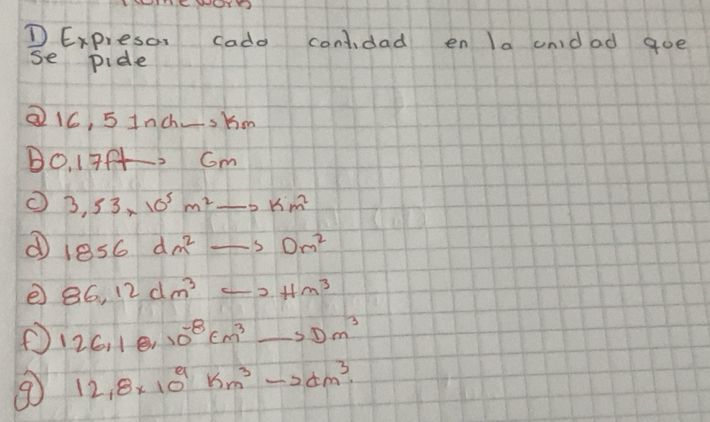 Homework
1) Expresar cada cantidad en la unidad que
se pide
a) 16,5 Inch → Km
b) 0,17 ft → Gm
c) 3,53 x 10⁵ m² → Km²
d) 1856 dm² → Dm²
e) 86,12 dm³ → Hm³
f) 126,18 x 10⁻⁸ cm³ → Dm³
g) 12,8 x 10⁹ Km³ → dm³.